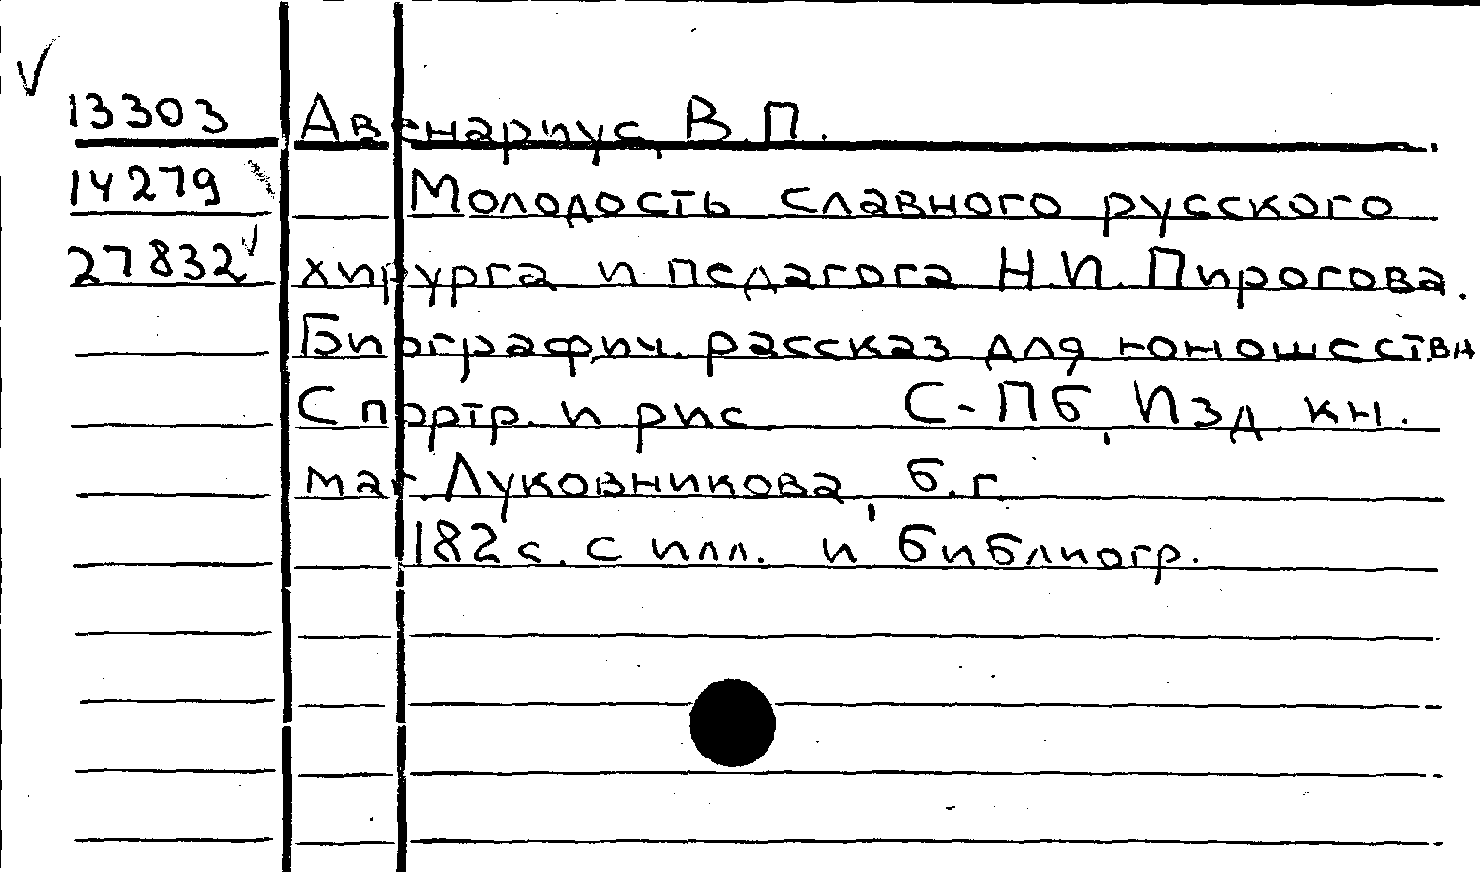 13303 Авенариус, В.П.
14279 Молодость славного русского
27832 хирурга и педагога Н.И. Пирогова.
Биографич. рассказ для юношества
С портр. и рис. С-Пб, Изд. кн.
маг. Луковникова, б.г.
182 с. с илл. и библиогр.